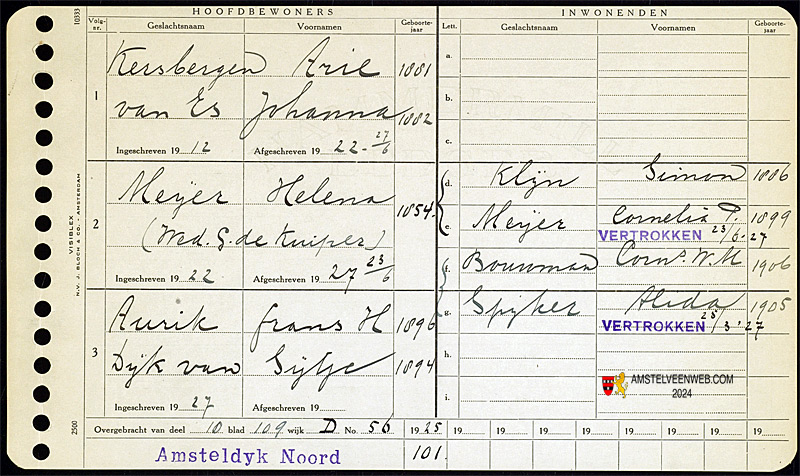 HOOFDBEWONERS INWONENDEN
Volg-nr. Geslachtsnaam Voornamen Geboorte-jaar Lett. Geslachtsnaam Voornamen Geboorte-jaar
10333
1 Kersbergen Arie 1881
van Es Johanna 1882
Ingeschreven 19 12 Afgeschreven 19 22 - 27/6
a.
b.
c.
2 Meijer Helena 1854
(Wed. G. de Kuiper)
Ingeschreven 19 22 Afgeschreven 19 27 23/6
d. Klijn Simon 1886
e. Meijer Cornelia P. 1899
VERTROKKEN 23/6-27
f. Bouwman Corns. W. M 1906
3 Aurik frans H 1896
Dijk van Sijtje 1894
Ingeschreven 19 27 Afgeschreven 19
g. Spijker Alida 1905
VERTROKKEN 25/3'27
h.
i.
AMSTELVEENWEB.COM
2024
VISIBLEX
N.V. J. BLOCH & CO., AMSTERDAM
2500
Overgebracht van deel 10 blad 109 wijk D No. 56 19 25 19 19 19 19 19 19 19
Amsteldyk Noord 101